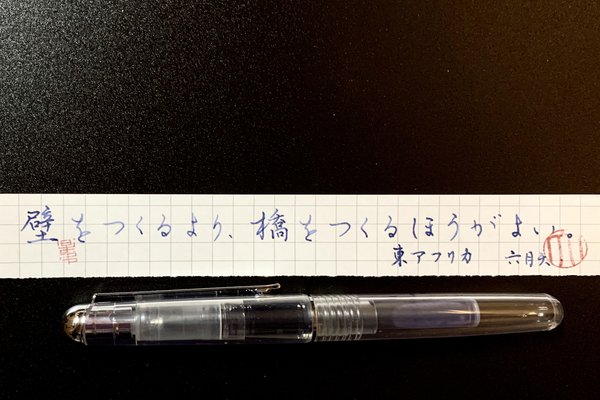 壁をつくるより、橋をつくるほうがよい。
東アフリカ 六月